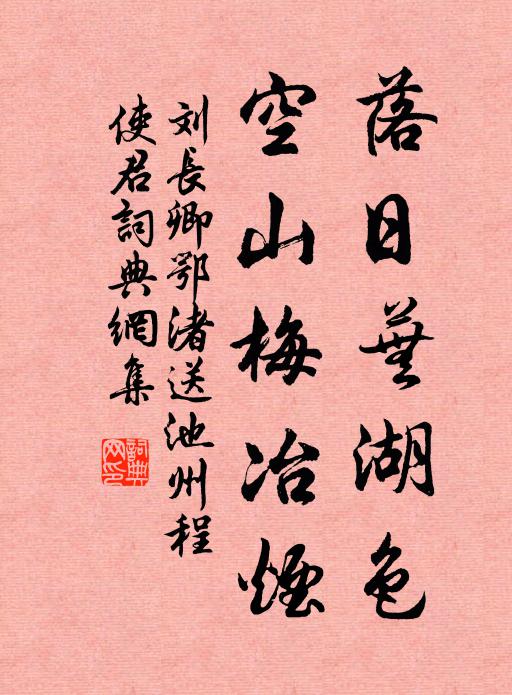 落日蕪湖色
空山梅冶煙
刘長卿鄂渚送池州程
使君詞典網集
詞典網印